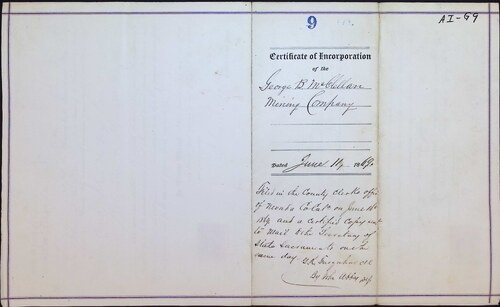 9
AI-69
Certificate of Incorporation
of the
George B McClellan
Mining Company
DATED June 14, 1864
Filed in the County Clerks office
of Nevada Co Cal on June 14th
1864 and a certified Copy sent
to Mail to the Secretary of
State Sacramento on the
same day
By John